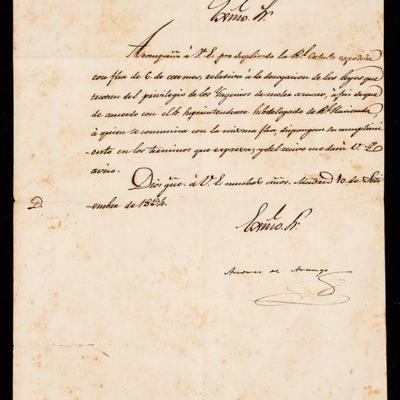 Exmo. Sr.
Acompaño á V.E. por duplicado la Rl. Cédula expedida
con fha. de 6 de  relativa á la derogacion de las leyes que
tratan del privilegio de los Yngenios de moler azucar, á fin de que
de acuerdo con el Sr. Superintendente Subdelegado de Rl. Hacienda
á quien se comunica con la misma fha, disponga su cumplimi-
ento en los terminos que expresa; y del recivo me dará V.E.
aviso.
Dios gue. á V.E. muchos años. Madrid 10 de Seti-
embre de 1834.
Exmo. Sr.
Andres de Arango
D.